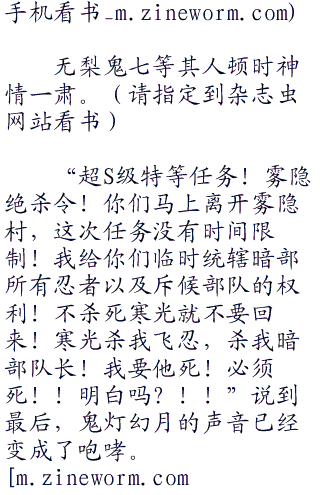 手机看书_m.zineworm.com)
无梨鬼七等其人顿时神
情一肃。（请指定到杂志虫
网站看书）
“超S级特等任务！雾隐
绝杀令！你们马上离开雾隐
村，这次任务没有时间限
制！我给你们临时统辖暗部
所有忍者以及斥候部队的权
利！不杀死寒光就不要回
来！寒光杀我飞忍，杀我暗
部队长！我要他死！必须
死！！明白吗？！！”说到
最后，鬼灯幻月的声音已经
变成了咆哮。
[m.zineworm.com